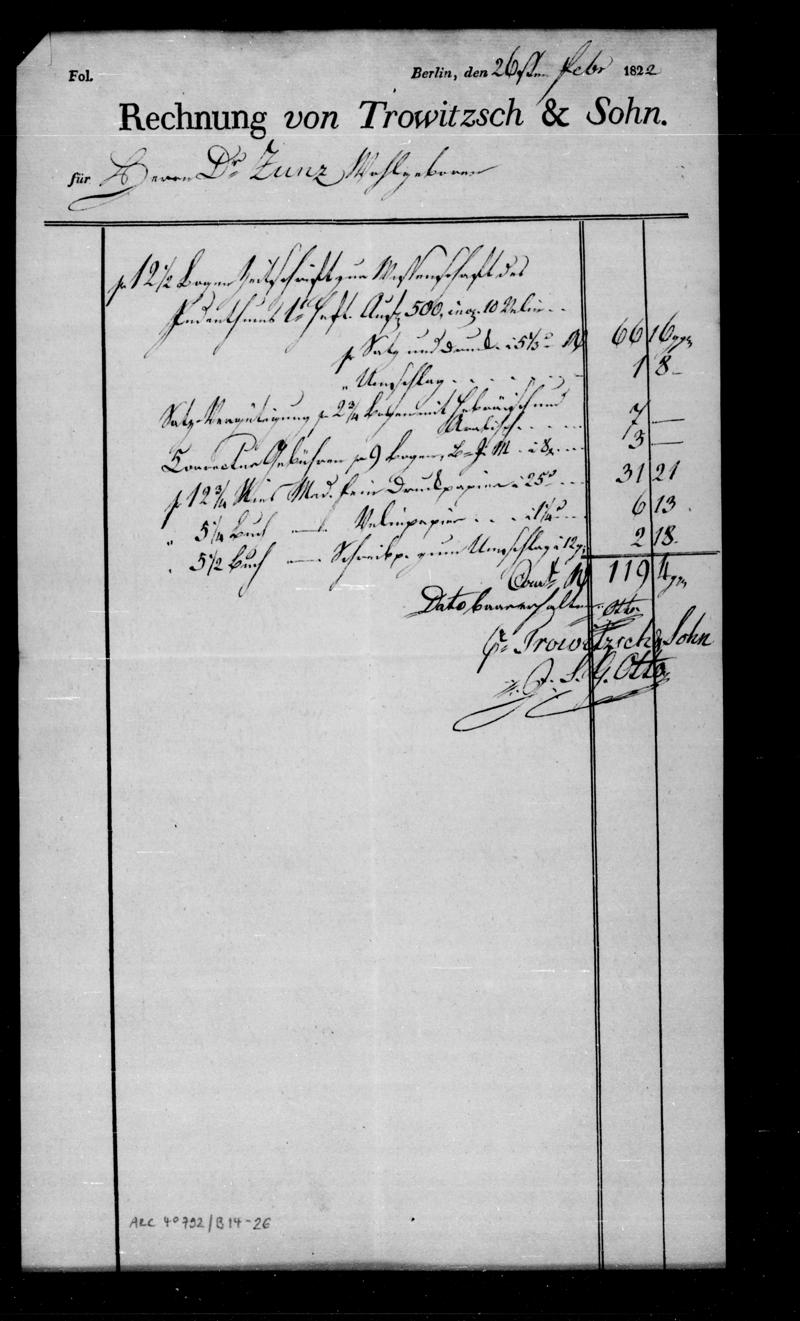 Fol.
Berlin, den 26sten Febr 1822
Rechnung von Trowitzsch & Sohn.
für Herrn Dr Zunz Wohlgeboren
pr 12½ Bogen Zeitschrift zur Wissenschaft des
Judenthums 1s Heft. Aufl. 500, incl. 10 Velin
pr Satz und Druck à 5⅓ rt 66 16 ggr
" Umschlag 1 8
Satz-Vergütigung pr 2¾ Bogen mit Hebräisch und
Arabisch 7 —
Correctur Gebühren pr 9 Bogen, B–J. M à 8 3 —
pr 12¾ Ries Med. fein Druckpapier à 2½ 31 21
" 5¼ Buch — Velinpapier à 1¼ 6 13
" 5½ Buch — Schreibp. zum Umschlag à 12 g 2 18
Court 119 4 ggr
Dato baar erhalten Otto
pr Trowitzsch & Sohn
J. S. G. Otto
ARC 4° 792/B14-26